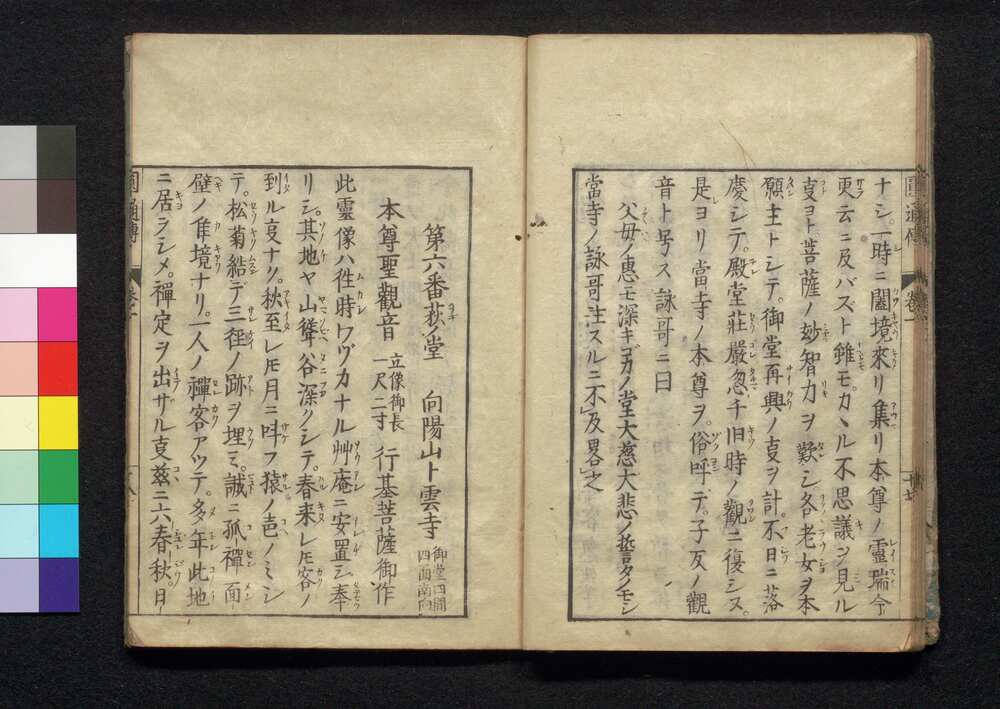 ナシ。一時ニ闔境來リ集リ本尊ノ靈瑞今
更云ニ及バスト雖モ。カヽル不思議ヲ見ル
夏ヨト菩薩ノ妙智力ヲ歎シ各老女ヲ本
願主トシテ。御堂再興ノ夏ヲ計。不日ニ落
慶シテ。殿堂莊嚴忽チ旧時ノ觀ニ復シス。
是ヨリ當寺ノ本尊ヲ。俗呼テ。子反ノ觀
音ト号ス詠哥ニ曰
父母ノ恵モ深キゴカノ堂大慈大悲ノ誓タノモシ
當寺ノ詠哥註スルニ不及畧之
第六番萩ノ堂 向陽山卜雲寺 御堂四間四面南向
本尊聖觀音 立像御長一尺二寸 行基菩薩御作
此靈像ハ徃時ワヅカナル艸庵ニ安置シ奉
リシ。其地ヤ山聳谷深クシテ。春来レ𪜈客ノ
到ル夏ナソ。秋至レ𪜈月ニ呌フ猿ノ声ノミシ
テ。松菊結テ三径ノ跡ヲ埋ミ。誠ニ孤禪面
壁ノ隹境ナリ。一人ノ禪客アツテ。多年此地
ニ居ラシメ。禪定ヲ出ザル夏茲ニ六春秋。日
圓通傳
巻一